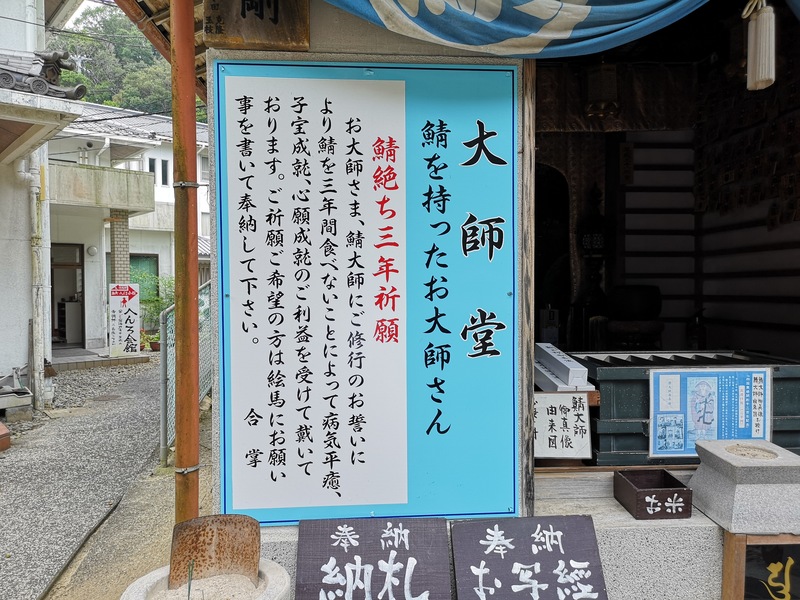 剛
大師堂
鯖を持ったお大師さん
鯖絶ち三年祈願
お大師さま、鯖大師にご修行のお誓いに
より鯖を三年間食べないことによって病気平癒、
子宝成就、心願成就のご利益を受けて戴いて
おります。ご祈願ご希望の方は絵馬にお願い
事を書いて奉納して下さい。
合掌
へんろ会館
鯖大師
御真像
由来図
お米
奉納
納札
奉納
お写経